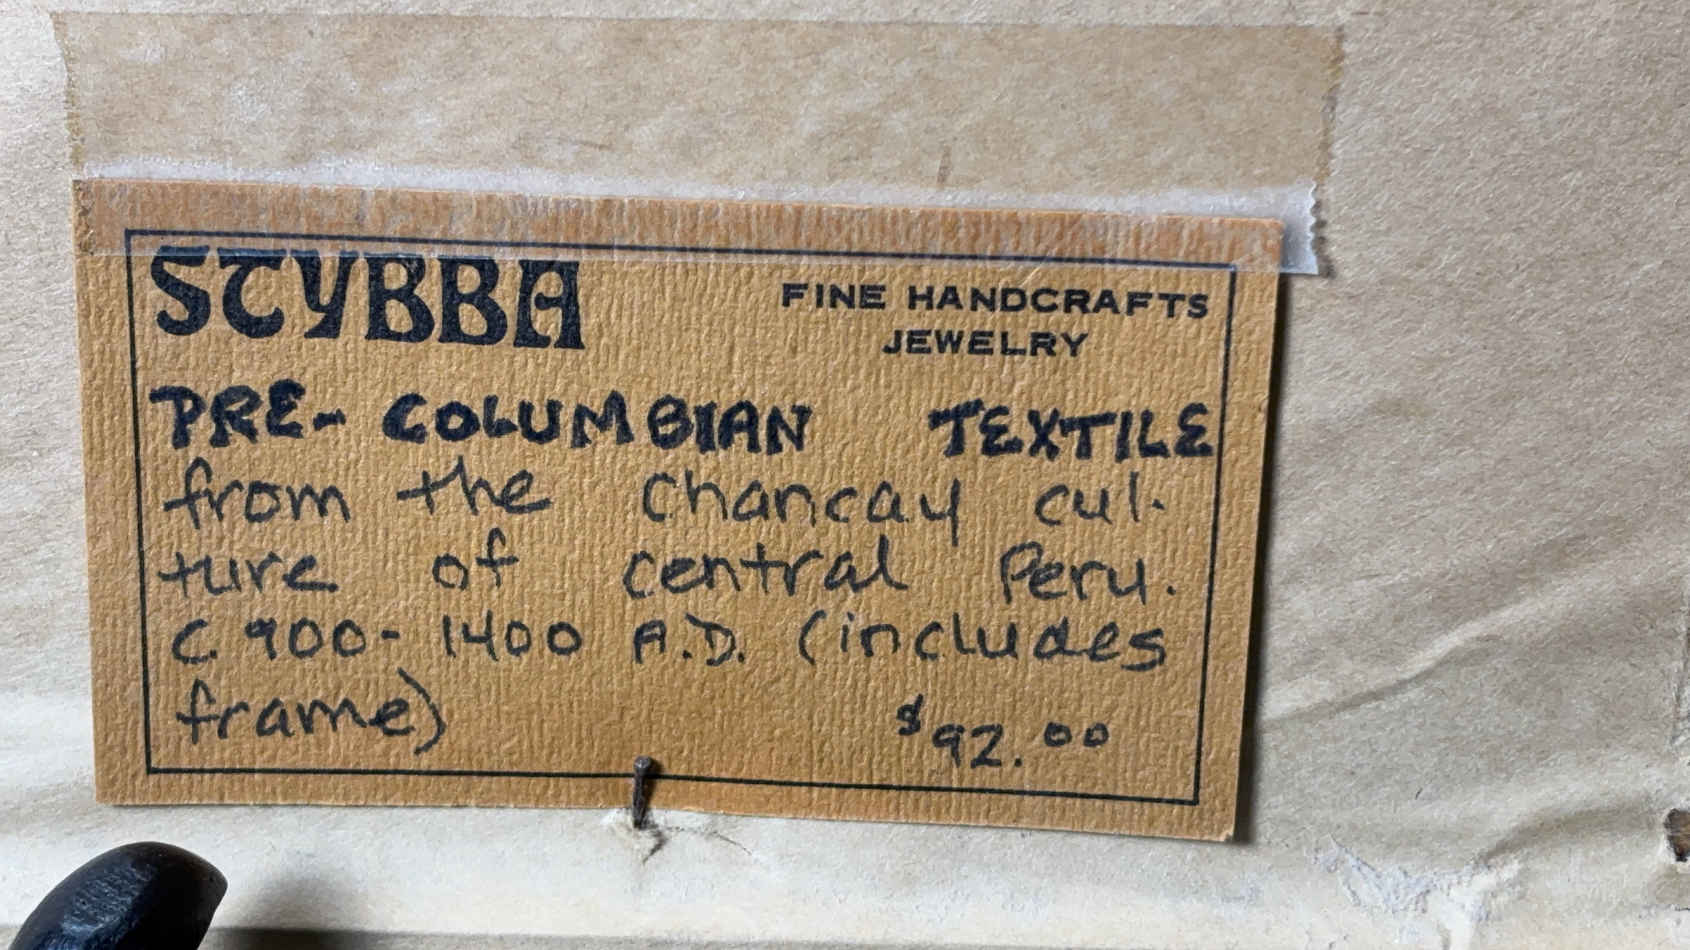 STYBBA
FINE HANDCRAFTS
JEWELRY
PRE-COLUMBIAN TEXTILE
from the Chancay cul-
ture of central Peru.
C. 900-1400 A.D. (includes
frame)
$92.00